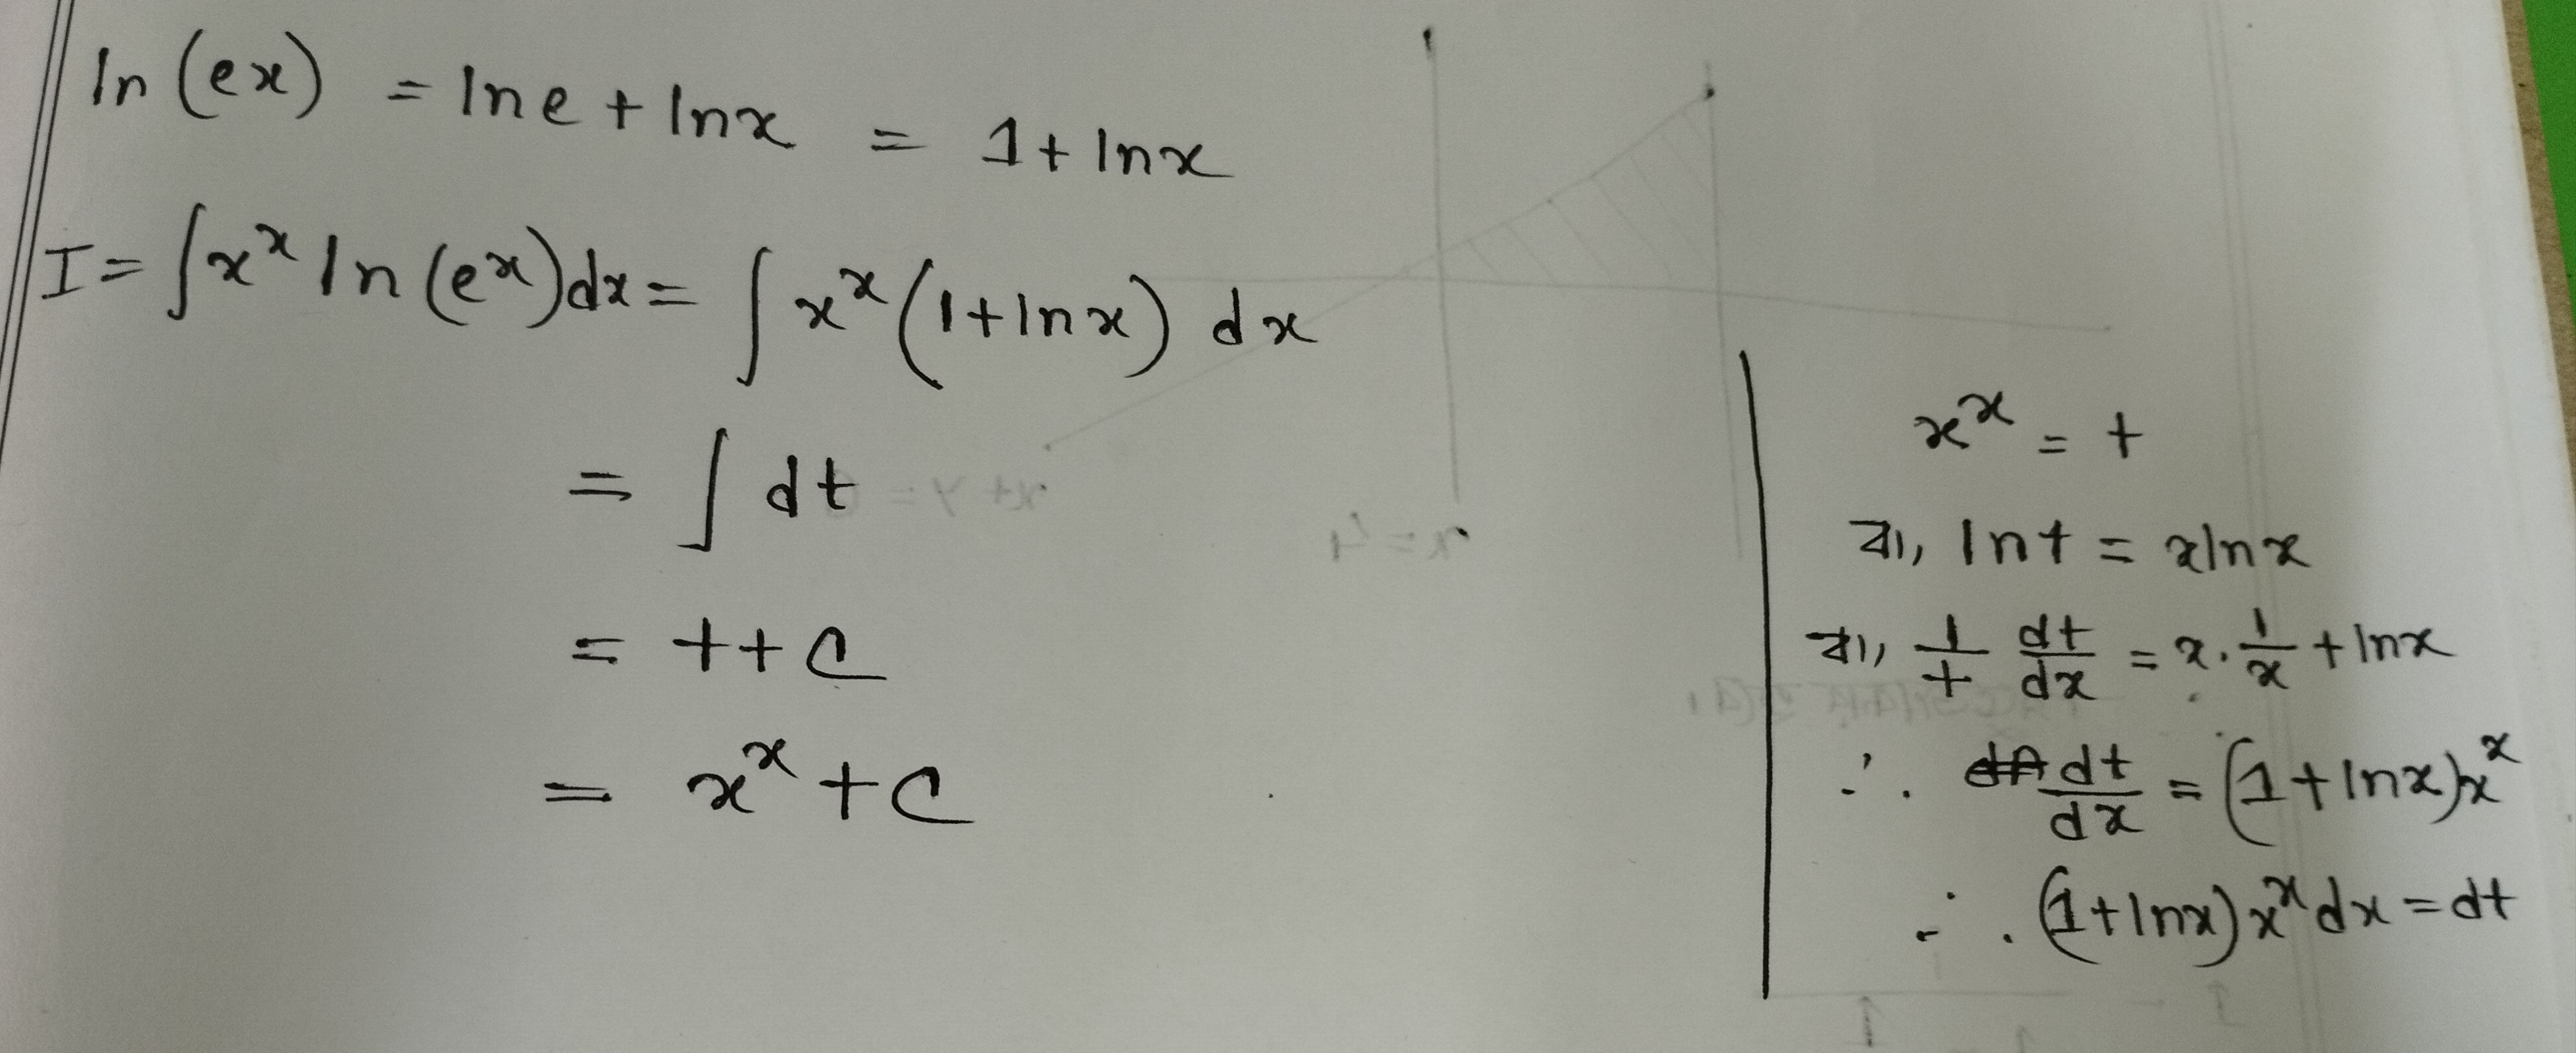 ln (ex) = lne + lnx = 1 + lnx
I = ∫x^x ln (ex)dx = ∫ x^x (1+lnx) dx
= ∫ dt
= t + c
= x^x + c
x^x = t
বা, lnt = xlnx
বা, 1/t dt/dx = x. 1/x + lnx
∴ dt/dx = (1+lnx)x^x
∴ (1+lnx) x^x dx = dt